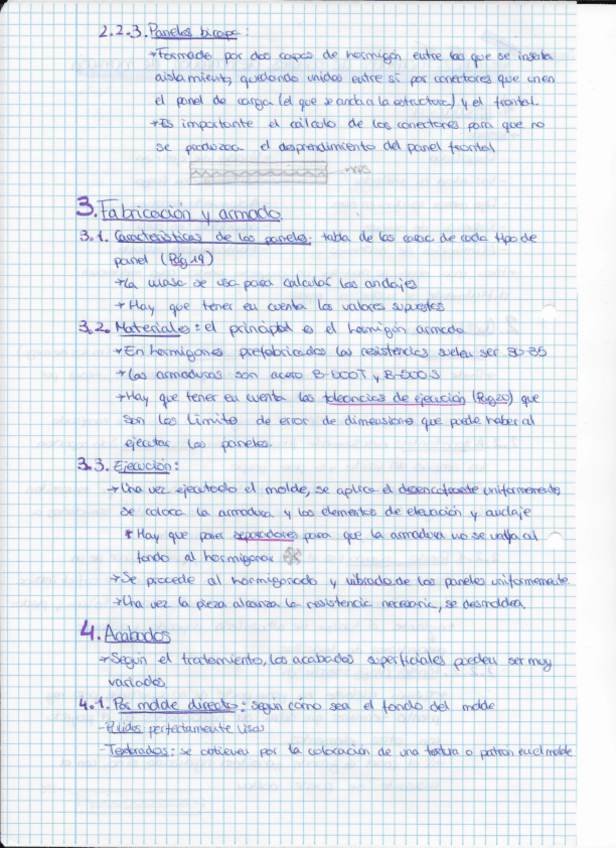 2.2.3. Paneles bicapa:
→Formado por dos capas de hormigón entre las que se inserta
aislamiento, quedando unidos entre sí por conectores que unen
el panel de carga (el que se ancla a la estructura) y el frontal.
→Es importante el cálculo de los conectores para que no
se produzca el desprendimiento del panel frontal
→XPS
3. Fabricación y armado
3.1. Características de los paneles: tabla de las carac de cada tipo de
panel (Pág.19)
→La masa se usa para calcular los anclajes
→Hay que tener en cuenta los valores supuestos
3.2. Materiales: el principal es el hormigón armado
→En hormigones prefabricados las resistencias suelen ser 30-35
→Las armaduras son acero B-500T y B-500S
→Hay que tener en cuenta las tolerancias de ejecución (Pág20) que
son los límite de error de dimensiones que puede haber al
ejecutar los paneles.
3.3. Ejecución:
→Una vez ejecutado el molde, se aplica el desencofrante uniformemente
se coloca la armadura y los elementos de elevación y anclaje
* Hay que poner separadores para que la armadura no se vaya al
fondo al hormigonar
→Se procede al hormigonado y vibrado de los paneles uniformemente
→Una vez la pieza alcanza la resistencia necesaria, se desmoldea.
4. Acabados
→Según el tratamiento, los acabados superficiales pueden ser muy
variados
4.1. Por molde directo: según cómo sea el fondo del molde
-Pulidos perfectamente lisos
-Texturados: se obtienen por la colocación de una textura o patrón en el molde